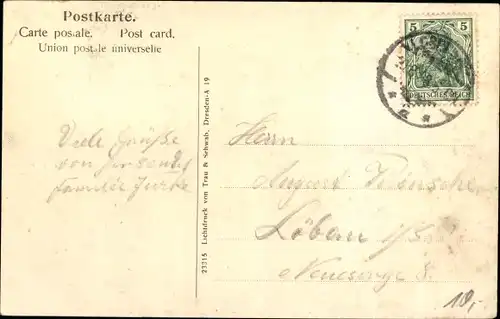 Postkarte.
Carte postale. Post card.
Union postale universelle
5 5
DEUTSCHES REICH
Viele Grüße
von
Familie
Herrn
August
Löbau i/Sa.
Neusorge 8.
23215 Lichtdruck von Trau & Schwab, Dresden-A 19
10,-